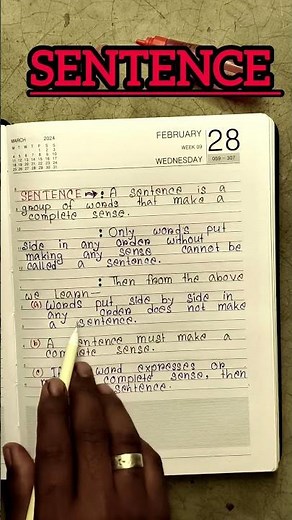 SENTENCE
MARCH 2024
FEBRUARY
WEEK 09
WEDNESDAY
28
059 - 307
SENTENCE → : A sentence is a
group of words that make a
complete sense.
: Only words put
side in any order without
making any sense cannot be
called a sentence.
: Then from the above
we learn—
(a) Words put side by side in
any order does not make
a sentence.
(b) A sentence must make a
complete sense.
(c) word expresses or
complete sense, then
sentence.